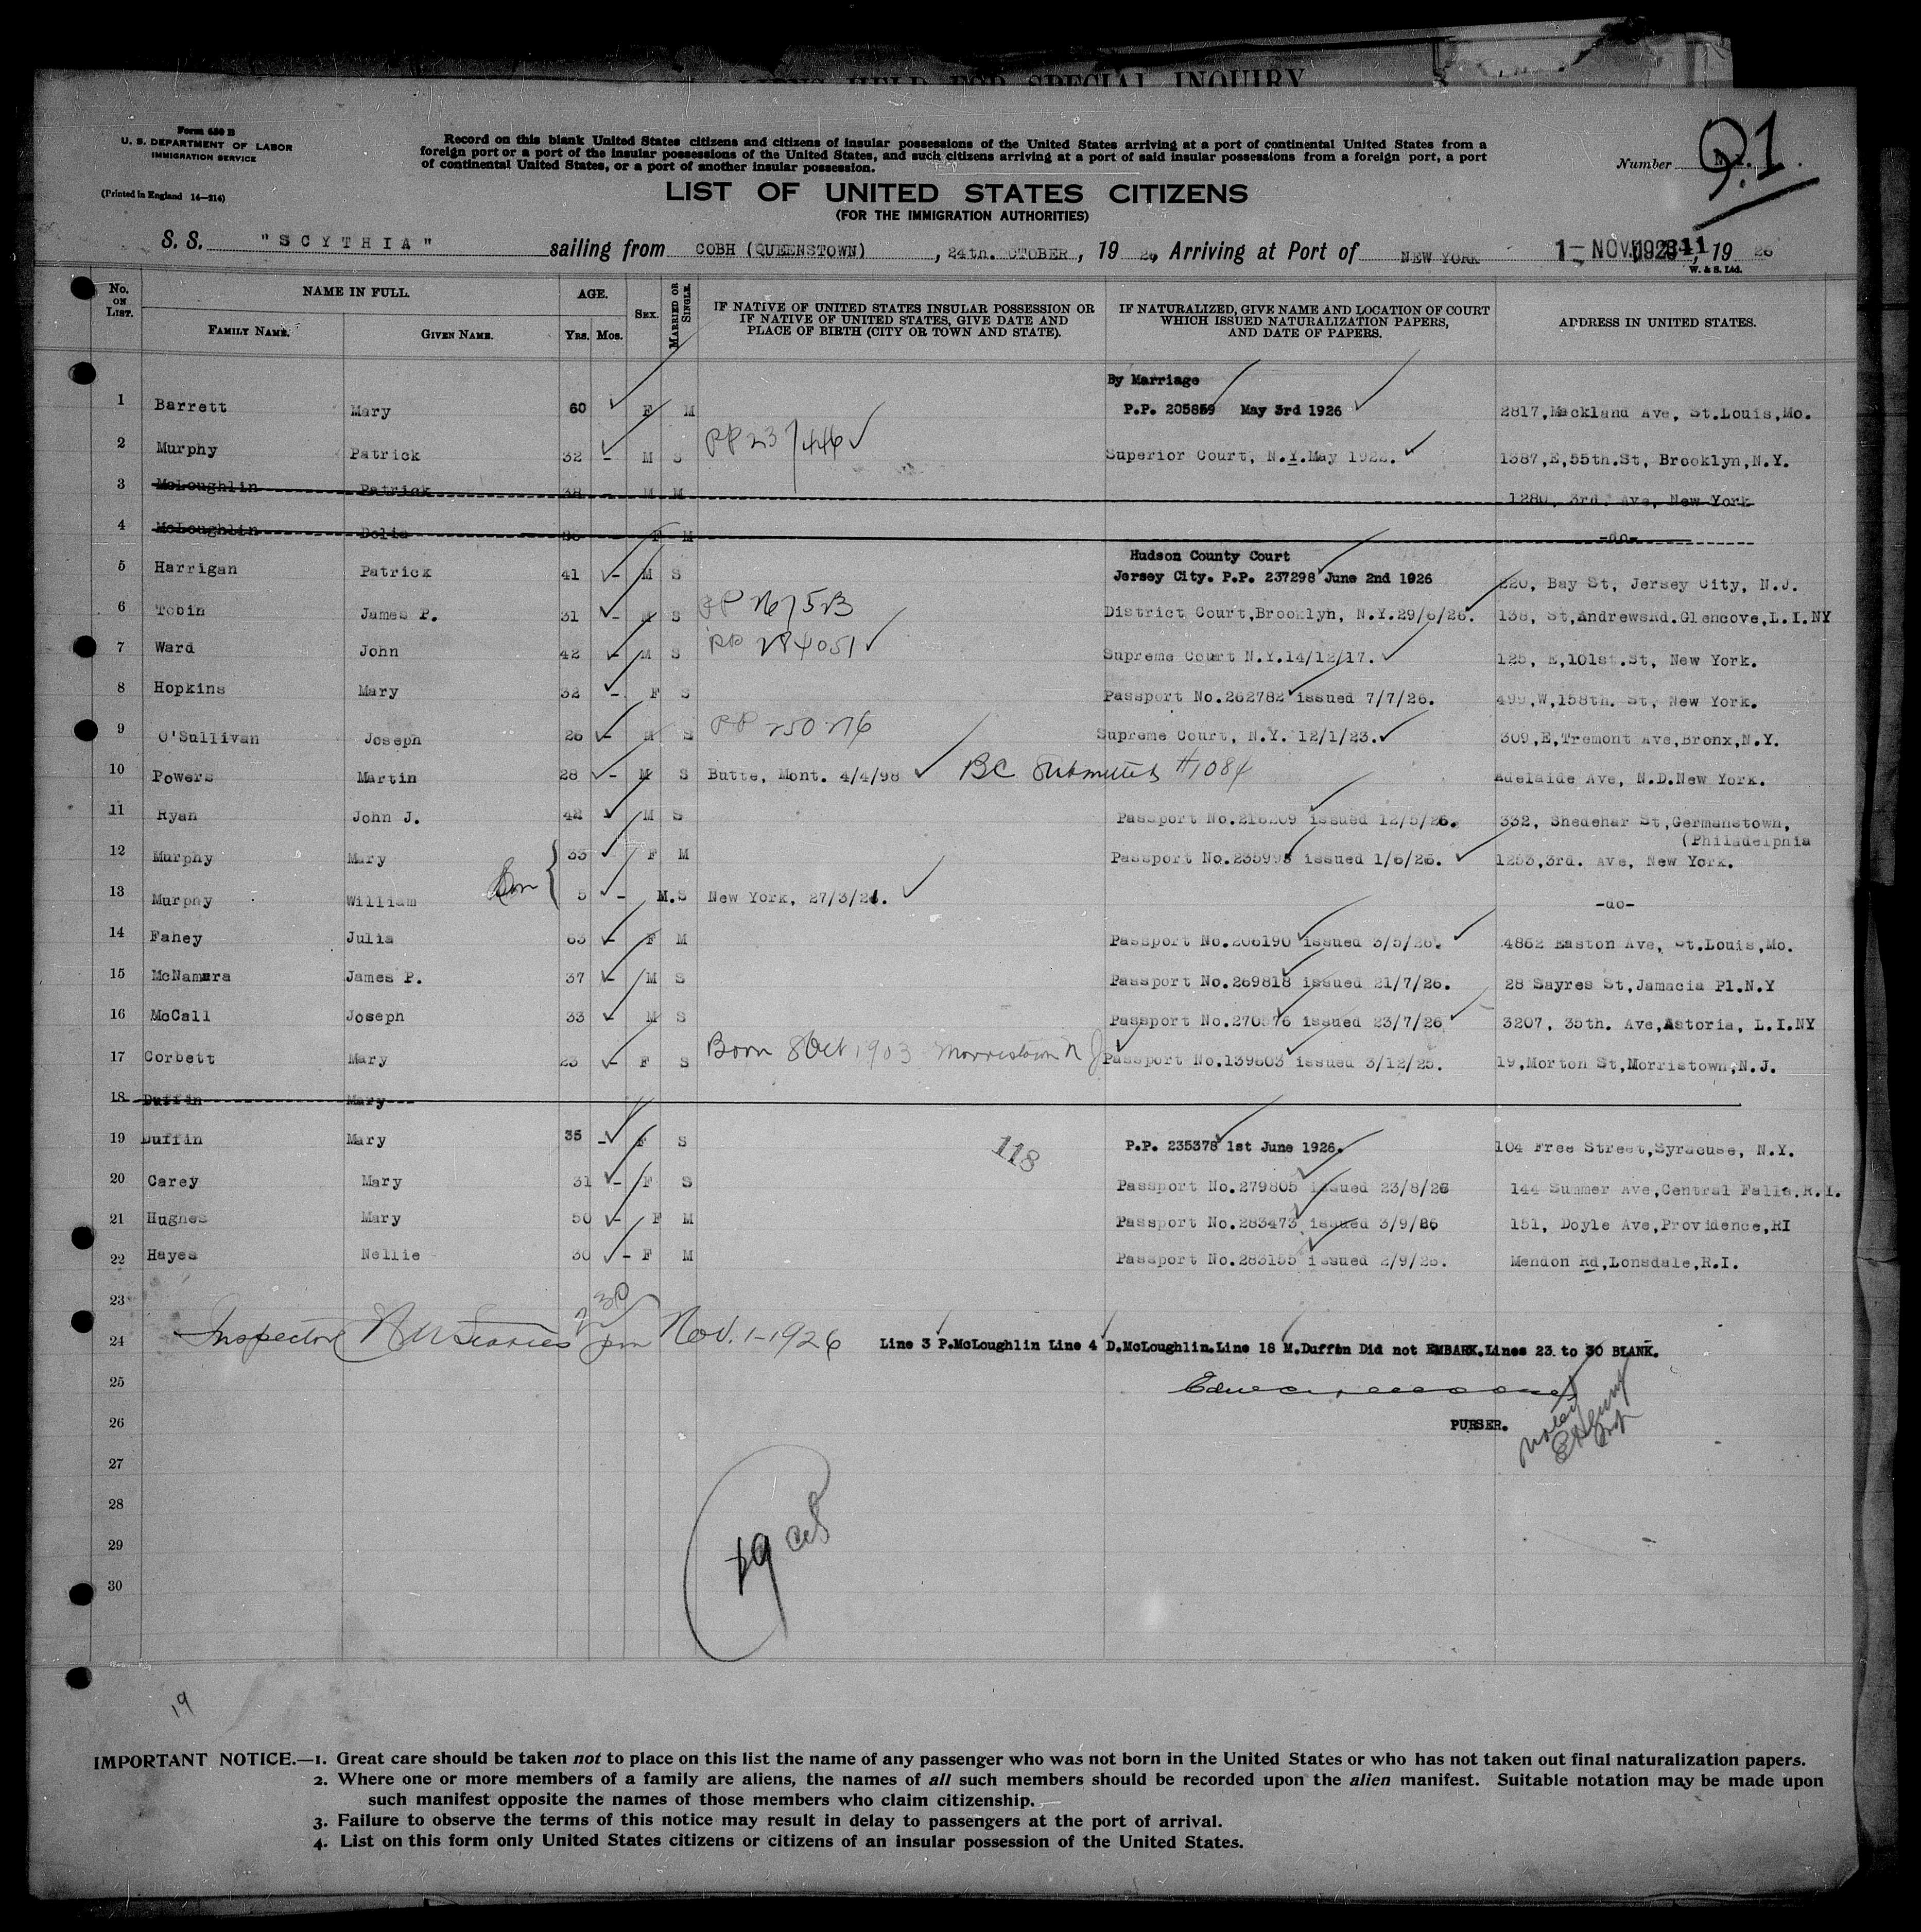 ALIENS HELD FOR SPECIAL INQUIRY
Form 630 B
U. S. DEPARTMENT OF LABOR
IMMIGRATION SERVICE
(Printed in England 14—214)
Record on this blank United States citizens and citizens of insular possessions of the United States arriving at a port of continental United States from a
foreign port or a port of the insular possessions of the United States, and such citizens arriving at a port of said insular possessions from a foreign port, a port
of continental United States, or a port of another insular possession.
Number
LIST OF UNITED STATES CITIZENS
(FOR THE IMMIGRATION AUTHORITIES)
S. S. "SCYTHIA" sailing from COBH (QUEENSTOWN), 24th. OCTOBER, 19 26, Arriving at Port of NEW YORK 1- NOV 1926 11, 19 26
W. & S. Ltd.
No. ON LIST. NAME IN FULL. AGE. SEX. MARRIED OR SINGLE. IF NATIVE OF UNITED STATES INSULAR POSSESSION OR IF NATIVE OF UNITED STATES, GIVE DATE AND PLACE OF BIRTH (CITY OR TOWN AND STATE). IF NATURALIZED, GIVE NAME AND LOCATION OF COURT WHICH ISSUED NATURALIZATION PAPERS, AND DATE OF PAPERS. ADDRESS IN UNITED STATES.
FAMILY NAME. GIVEN NAME. Yrs. Mos.
By Marriage
1 Barrett Mary 60 F M P.P. 205859 May 3rd 1926 2817,Mackland Ave, St.Louis,Mo.
2 Murphy Patrick 32 - M S PP 237446 Superior Court, N.Y.May 1922. 1387,E,55th.St, Brooklyn,N.Y.
3 McLoughlin Patrick 38 - M M 1280, 3rd. Ave, New York
4 McLoughlin Delia F M -do-
Hudson County Court
5 Harrigan Patrick 41 - M S Jersey City. P.P. 237298 June 2nd 1926 220, Bay St, Jersey City, N.J.
6 Tobin James P. 31 - M S District Court,Brooklyn, N.Y.29/6/26. 138, St,AndrewsRd.Glencove,L.I.NY
7 Ward John 42 - M S PP 284051 Supreme Court N.Y.14/12/17. 125, E,101st.St, New York.
8 Hopkins Mary 32 - F S Passport No.262782 issued 7/7/26. 499,W,158th. St, New York.
9 O'Sullivan Joseph 26 - M S PP 250276 Supreme Court, N.Y. 12/1/23. 309,E,Tremont Ave,Bronx,N.Y.
10 Powers Martin 28 - M S Butte, Mont. 4/4/98 BC Submitted #1084 Adelaide Ave, N.D.New York.
11 Ryan John J. 42 M S Passport No.218209 issued 12/5/26. 332, Shedehar St,Germanstown,
(Philadelphia
12 Murphy Mary 33 F M Passport No.235998 issued 1/6/26. 1253,3rd. Ave, New York.
13 Murphy William Son 5 - M.S New York, 27/3/21. -do-
14 Fahey Julia 63 - F M Passport No.206190 issued 3/5/26. 4862 Easton Ave, St.Louis,Mo.
15 McNamara James P. 37 - M S Passport No.269818 issued 21/7/26. 28 Sayres St,Jamacia Pl.N.Y
16 McCall Joseph 33 - M S Passport No.270576 issued 23/7/26 3207, 35th. Ave,Astoria, L.I.NY
17 Corbett Mary 23 - F S Born 8 Oct 1903 Morristown N J Passport No.139603 issued 3/12/25. 19,Morton St,Morristown,N.J.
18 Duffin Mary
19 Duffin Mary 35 - F S P.P. 235378 1st June 1926. 104 Free Street,Syracuse, N.Y.
118
20 Carey Mary 31 - F S Passport No.279805 issued 23/8/26 144 Summer Ave,Central Falls.R.I.
21 Hughes Mary 50 - F M Passport No.283473 issued 3/9/26 151, Doyle Ave,Providence,RI
22 Hayes Nellie 30 - F M Passport No.283155 issued 2/9/26. Mendon Rd,Lonsdale,R.I.
23
24 Inspector 2 30 pm Nov. 1-1926 Line 3 P.McLoughlin Line 4 D.McLoughlin.Line 18 M.Duffin Did not EMBARK.Lines 23 to 30 BLANK.
25
26 PURSER.
27
28
29 19 cit
30
19
IMPORTANT NOTICE.—1. Great care should be taken not to place on this list the name of any passenger who was not born in the United States or who has not taken out final naturalization papers.
2. Where one or more members of a family are aliens, the names of all such members should be recorded upon the alien manifest. Suitable notation may be made upon
such manifest opposite the names of those members who claim citizenship.
3. Failure to observe the terms of this notice may result in delay to passengers at the port of arrival.
4. List on this form only United States citizens or citizens of an insular possession of the United States.